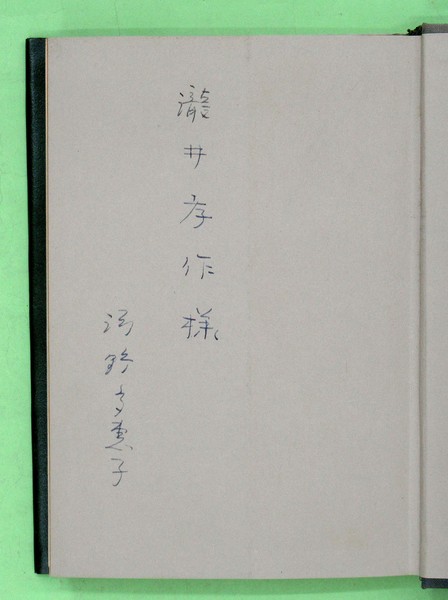 瀧井孝作様
河野多惠子